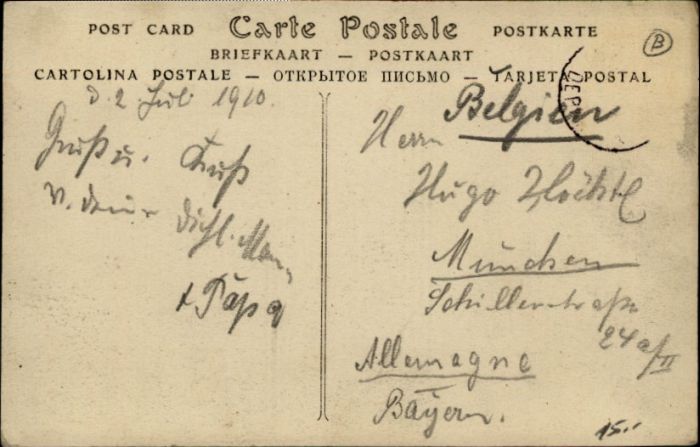 POST CARD Carte Postale POSTKARTE
BRIEFKAART — POSTKAART
CARTOLINA POSTALE — ОТКРЫТОЕ ПИСЬМО — TARJETA POSTAL
B
DEP
d. 2. Juli 1910.
Gruß u. Kuß
v. dein
Mann
+ Papa
Belgien
Herrn
Hugo
München
Schillerstraße
24a/II
Allemagne
Bayern.
15.-